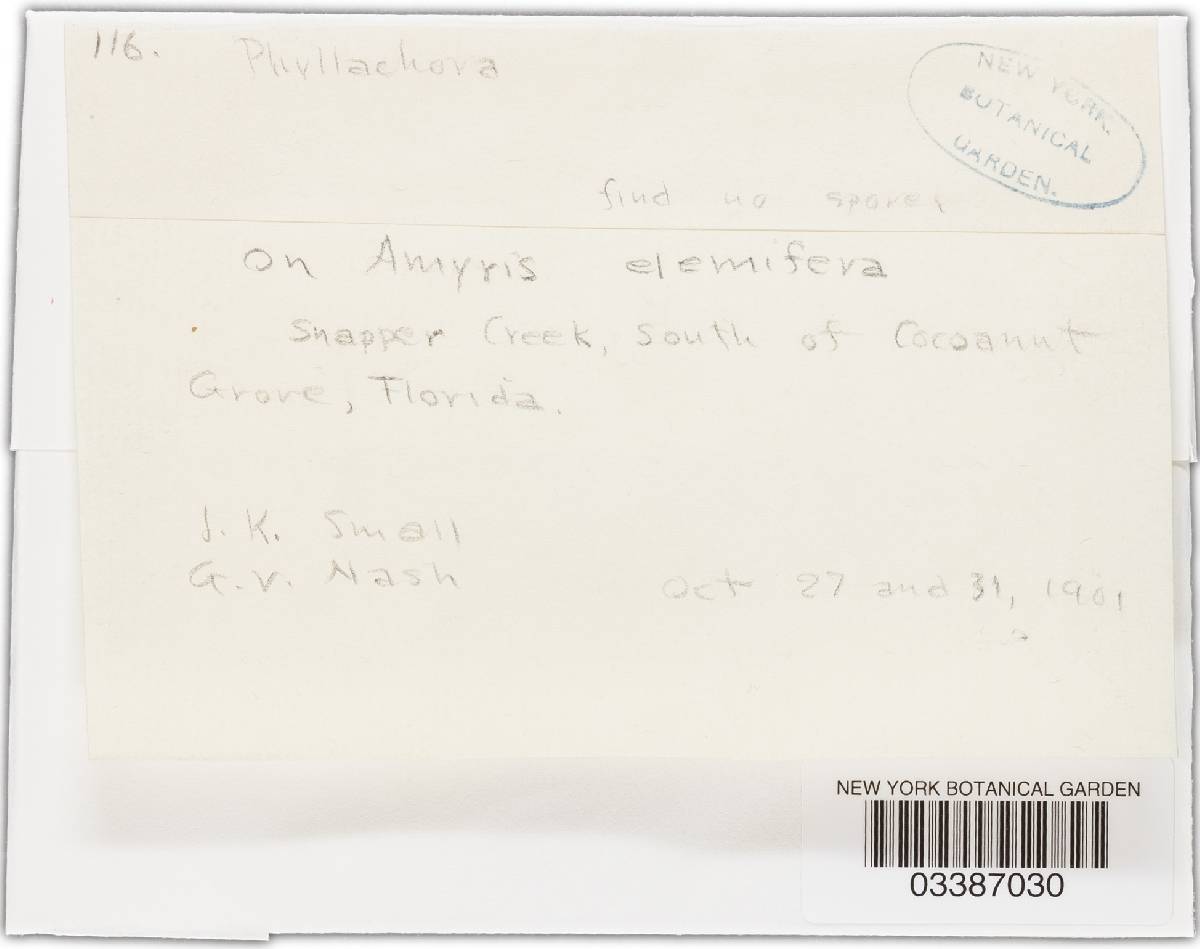 116. Phyllachora
NEW YORK
BOTANICAL
GARDEN.
find no spores
On Amyris elemifera
Snapper Creek, South of Cocoanut
Grove, Florida.
J. K. Small
G. V. Nash
Oct 27 and 31, 1901
NEW YORK BOTANICAL GARDEN
03387030